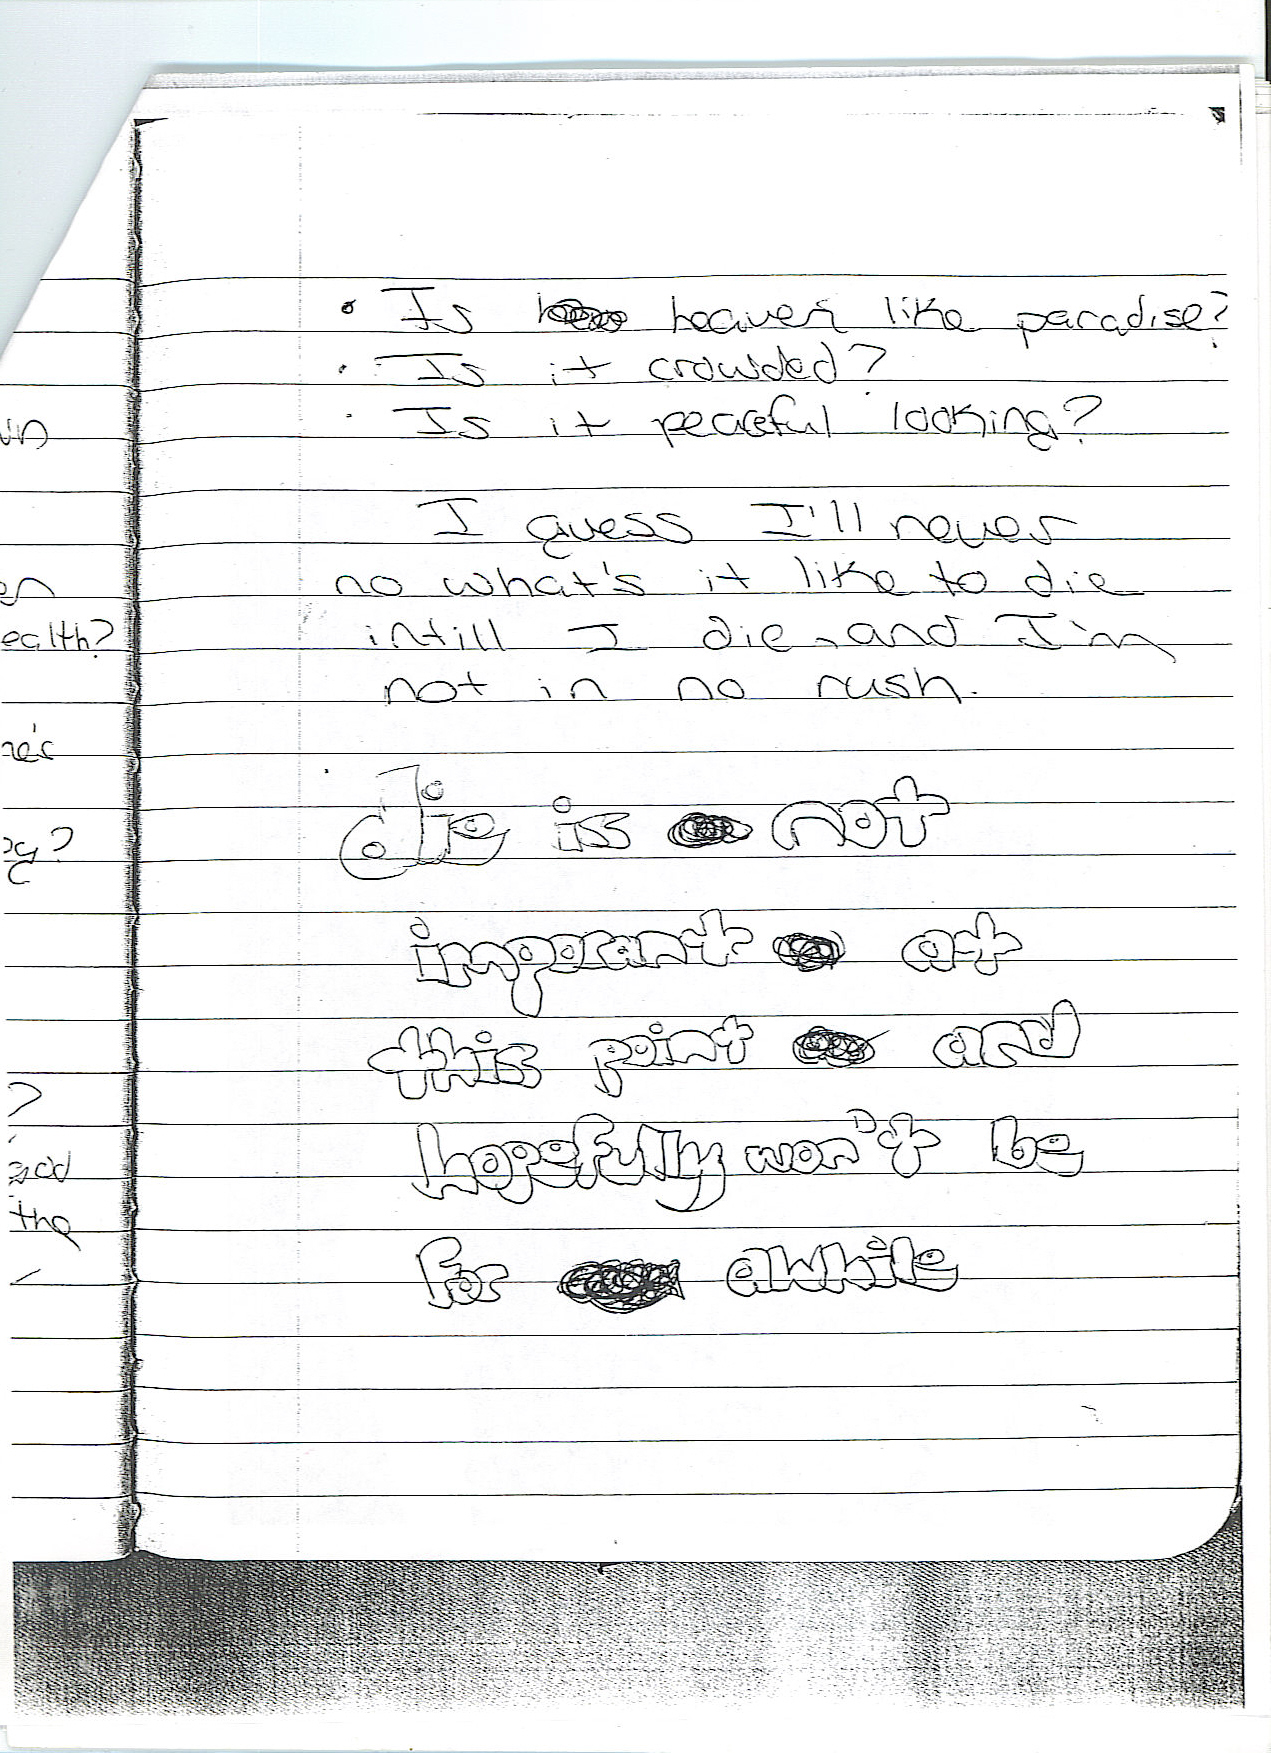 • Is heaven like paradise?
• Is it crowded?
• Is it peaceful looking?
I guess I'll never
no what's it like to die
intill I die, and I'm
not in no rush.
die is not
imporant at
this point and
hopefully won't be
for awhile
ealth?
?
the